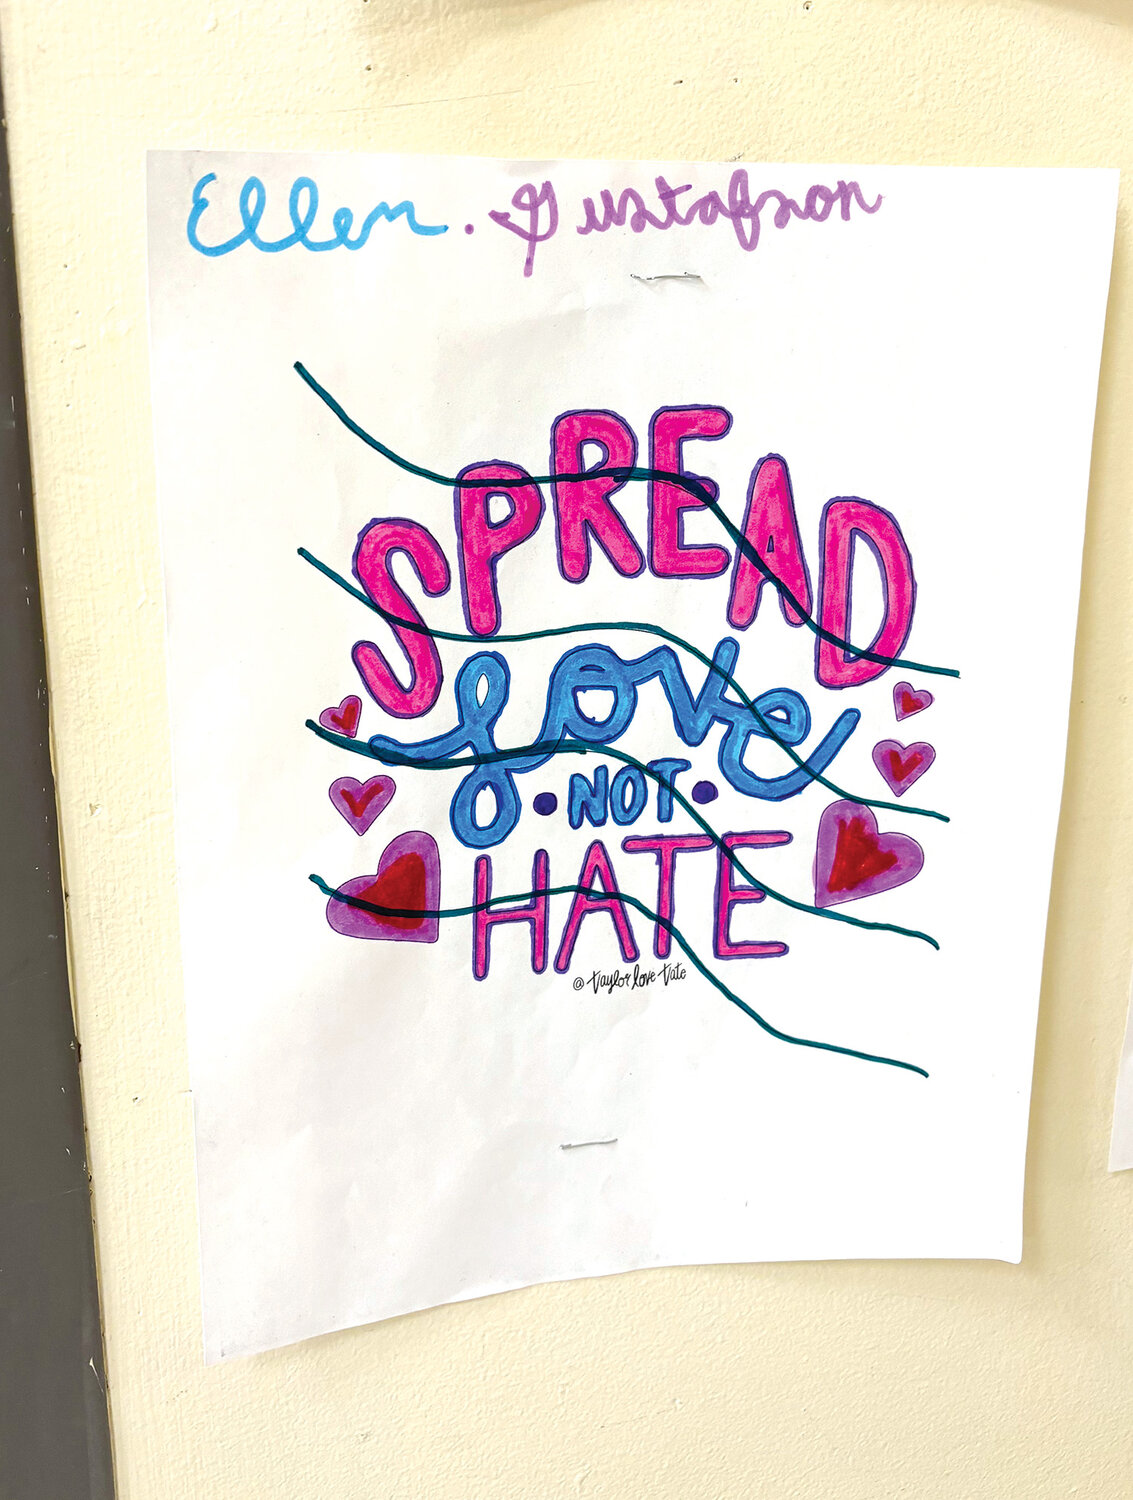 Ellen. Gustafson
SPREAD
love
• NOT •
HATE
@taylor love tate